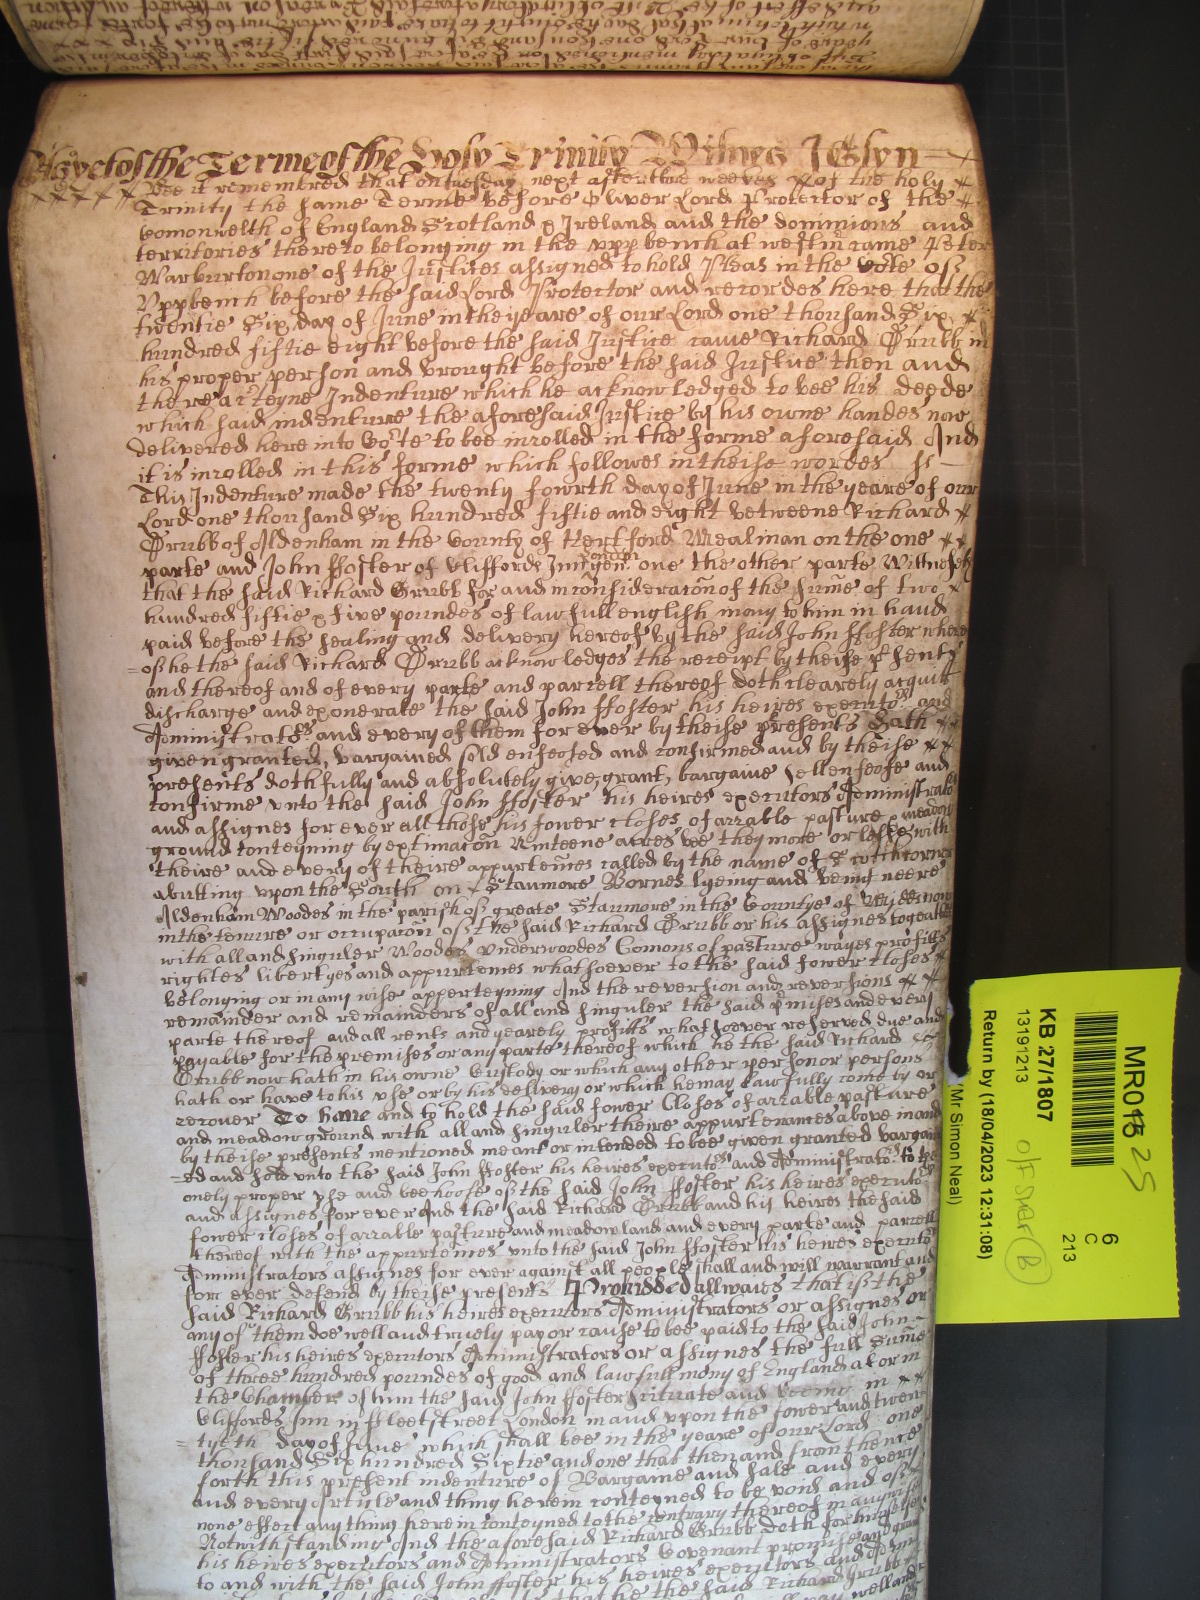 As yet of the Terme of the Holy Trinity Witnes J Glyn
Bee it remembred that on Tuesday next after three weekes of the holy
Trinity the same Terme before Oliver Lord Protector of the
Comonwelth of England Scotland & Ireland and the dominions and
territories thereto belonging in the upp bench at westm came Peter
Warburton one of the Justices assigned to hold Pleas in the Cote of
Upp bench before the said Lord Protector and recordes here that the
twentie Six day of June in the yeare of our Lord one thousand Six
hundred fiftie eight before the said Justice came Richard Grubb in
his proper person and brought before the said Justice then and
there a certeyne Indenture which he acknowledged to bee his deede
which said indenture the aforesaid Justice by his owne handes now
delivered here into Cote to bee inrolled in the forme aforesaid And
it is inrolled in this forme which followes in theise wordes ss
This Indenture made the twenty fowrth day of June in the yeare of our
Lord one thousand Six hundred fiftie and eight betweene Richard
Grubb of Aldenham in the County of Hertford Mealman on the one
parte and John ffoster of Cliffords Inn London gen one the other parte Witnesseth
that the said Richard Grubb for and in consideracon of the sume of two
hundred fiftie & five poundes of lawfull english mony to him in hand
paid before the sealing and delivery hereof by the said John ffoster where
of he the said Richard Grubb acknowledges the receipt by theise psents
and thereof and of every parte and parcell thereof doth clearely acquitt
discharge and exonerate the said John ffoster his heires executors and
Administrators and every of them for ever by theise presents Hath
given granted, bargained sold enfeofed and confirmed and by theise
presents doth fully and absolutely give, grant, bargaine sell enfeofe and
confirme unto the said John ffoster his heires executors Administrators
and assignes for ever all those his fower closes of arrable pasture & meadow
ground conteyning by estimacon Ninteene acres bee they more or lesse with
theire and every of theire appurtences called by the name of
abutting upon the South on Stanmore Bornes lyeing and being neere
Aldenham Woodes in the parish of greate Stanmore in the Countye of Middlesex
in the tenure or occupacon of the said Richard Grubb or his assignes togeather
with all and singuler Woodes Underwoodes Comons of pasture wayes profitts
rightes libertyes and appurtences whatsoever to the said fower closes
belonging or in any wise apperteyning And the reversion and reversions
remainder and remainders of all and singuler the said pmises and every
parte thereof and all rents and yearely profitts whatsoever reserved due and
payable for the premises or any parte thereof which he the said Richard
Grubb now hath in his owne Custody or which any other person or persons
hath or have to his use or by his delivery or which he may lawfully come by or
recover To have and to hold the said fower Closes of arrable pasture
and meadow ground with all and singuler theire appurtenances above in and
by theise presents mentioned meant or intended to bee given granted bargain
ed and sold unto the said John ffoster his heires executors and Administrators to the
onely proper use and beehoofe of the said John ffoster his heires executors
and assignes for ever And the said Richard Grubb and his heires the said
fower closes of arrable pasture and meadow land and every parte and parcell
thereof with the appurtences unto the said John ffoster his heires executors
Administrators assignes for ever against all people shall and will warrant and
for ever defend by theise presents Provided allwaies that if the
said Richard Grubb his heires executors Administrators or assignes or
any of them doe well and truely pay or cause to bee paid to the said John
ffoster his heires executors Administrators or assignes the full Sume
of three hundred poundes of good and lawfull mony of England at or in
the Chamber of him the said John ffoster scituate and beeing in
Cliffords Inn in ffleetstreet London in and upon the fower and twen
tyeth day of June which shall bee in the yeare of our Lord one
thousand Six hundred Sixtie and one that then and from thence
forth this present indenture of Bargaine and sale and every
and every Article and thing herein conteyned to be void and of
none effect any thing herein conteyned to the contrary thereof in anywise
Notwithstanding And the aforesaid Richard Grubb doth for himselfe
his heires executors and Administrators Covenant promise and grant
to and with the said John ffoster his heires executors and Admin
that he the said Richard Grubb
MR016 25
6
C
213
KB 27/1807
13191213
O/F Sner (B)
Return by (18/04/2023 12:31:08)
(Mr. Simon Neal)